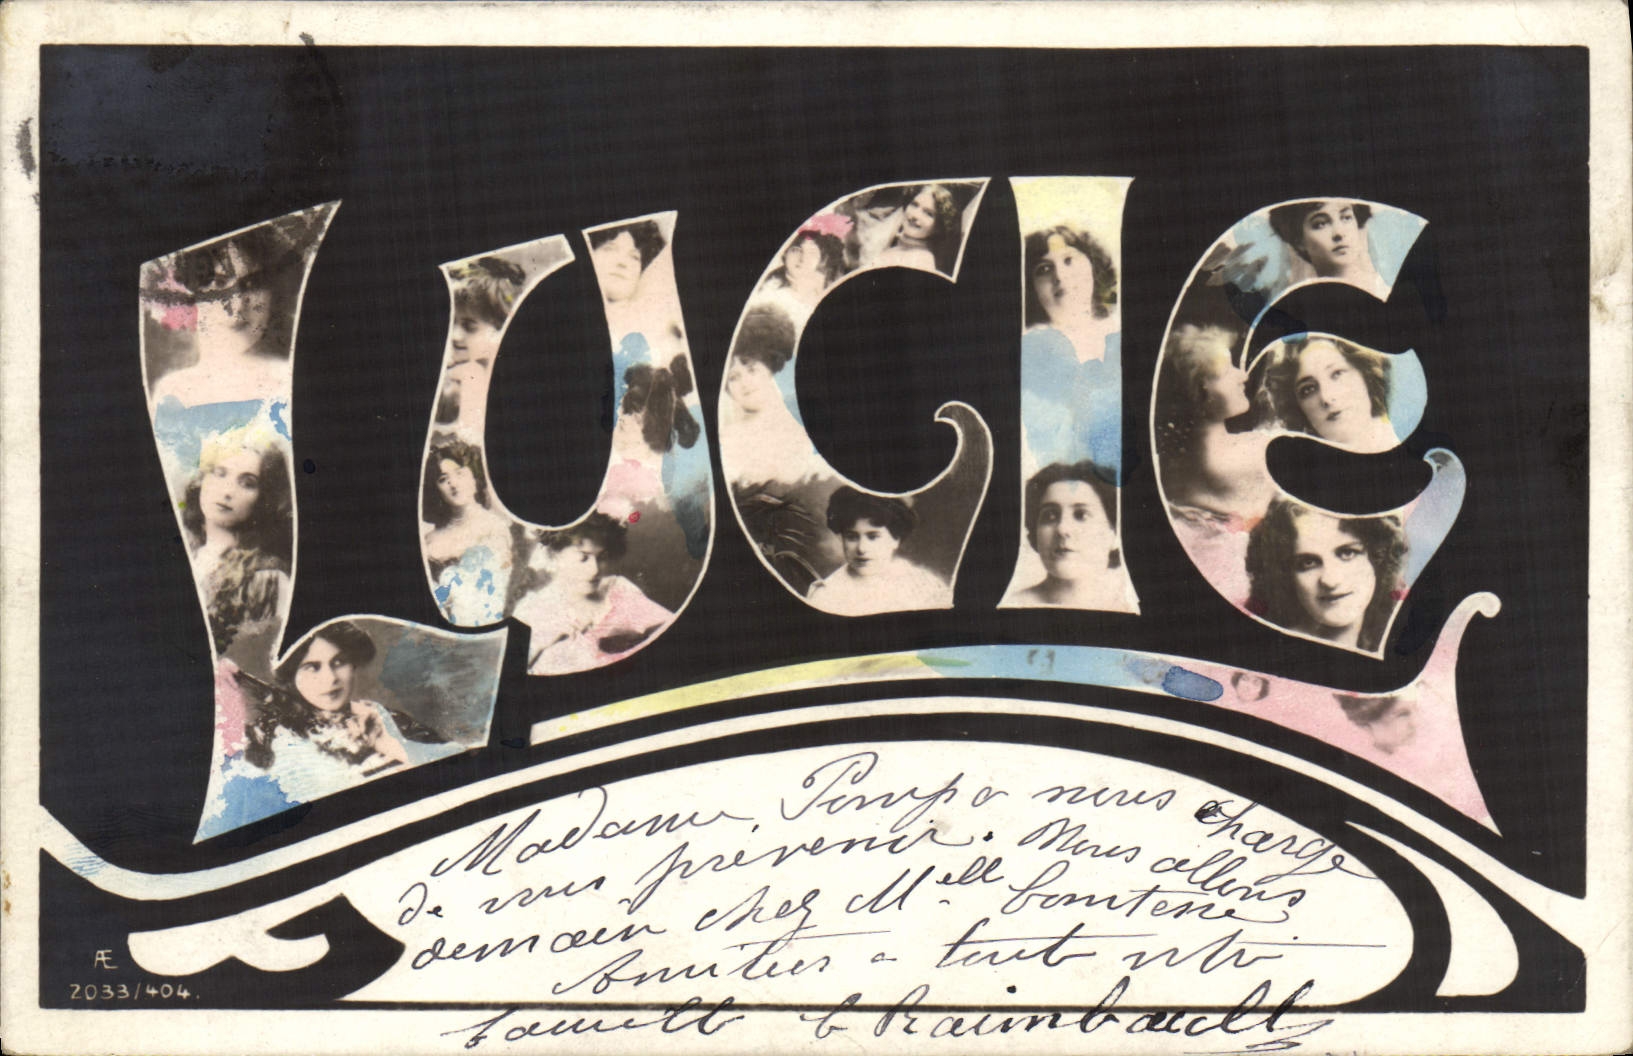 LUCIE
Madame, Pompa nous charge
de vous prévenir. Nous allons
demain chez Melle Comtesse
Amitiés a toute votre
famille C Raimbault
Æ
2033/404.